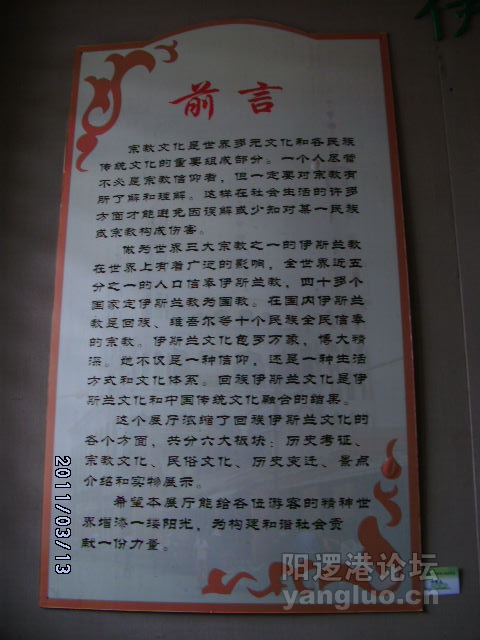 伊
前言
宗教文化是世界多元文化和各民族
传统文化的重要组成部分。一个人尽管
不必是宗教信仰者，但一定要对宗教有
所了解和理解。这样在社会生活的许多
方面才能避免因误解或少知对某一民族
或宗教构成伤害。
做为世界三大宗教之一的伊斯兰教
在世界上有着广泛的影响，全世界近五
分之一的人口信奉伊斯兰教，四十多个
国家定伊斯兰教为国教。在国内伊斯兰
教是回族、维吾尔等十个民族全民信奉
的宗教。伊斯兰文化包罗万象，博大精
深。她不仅是一种信仰，还是一种生活
方式和文化体系。回族伊斯兰文化是伊
斯兰文化和中国传统文化融合的结果。
这个展厅浓缩了回族伊斯兰文化的
各个方面，共分六大板块：历史考证、
宗教文化、民俗文化、历史变迁、景点
介绍和实物展示。
希望本展厅能给各位游客的精神世
界增添一缕阳光，为构建和谐社会贡
献一份力量。
2011/03/13
阳逻港论坛
yangluo.cn